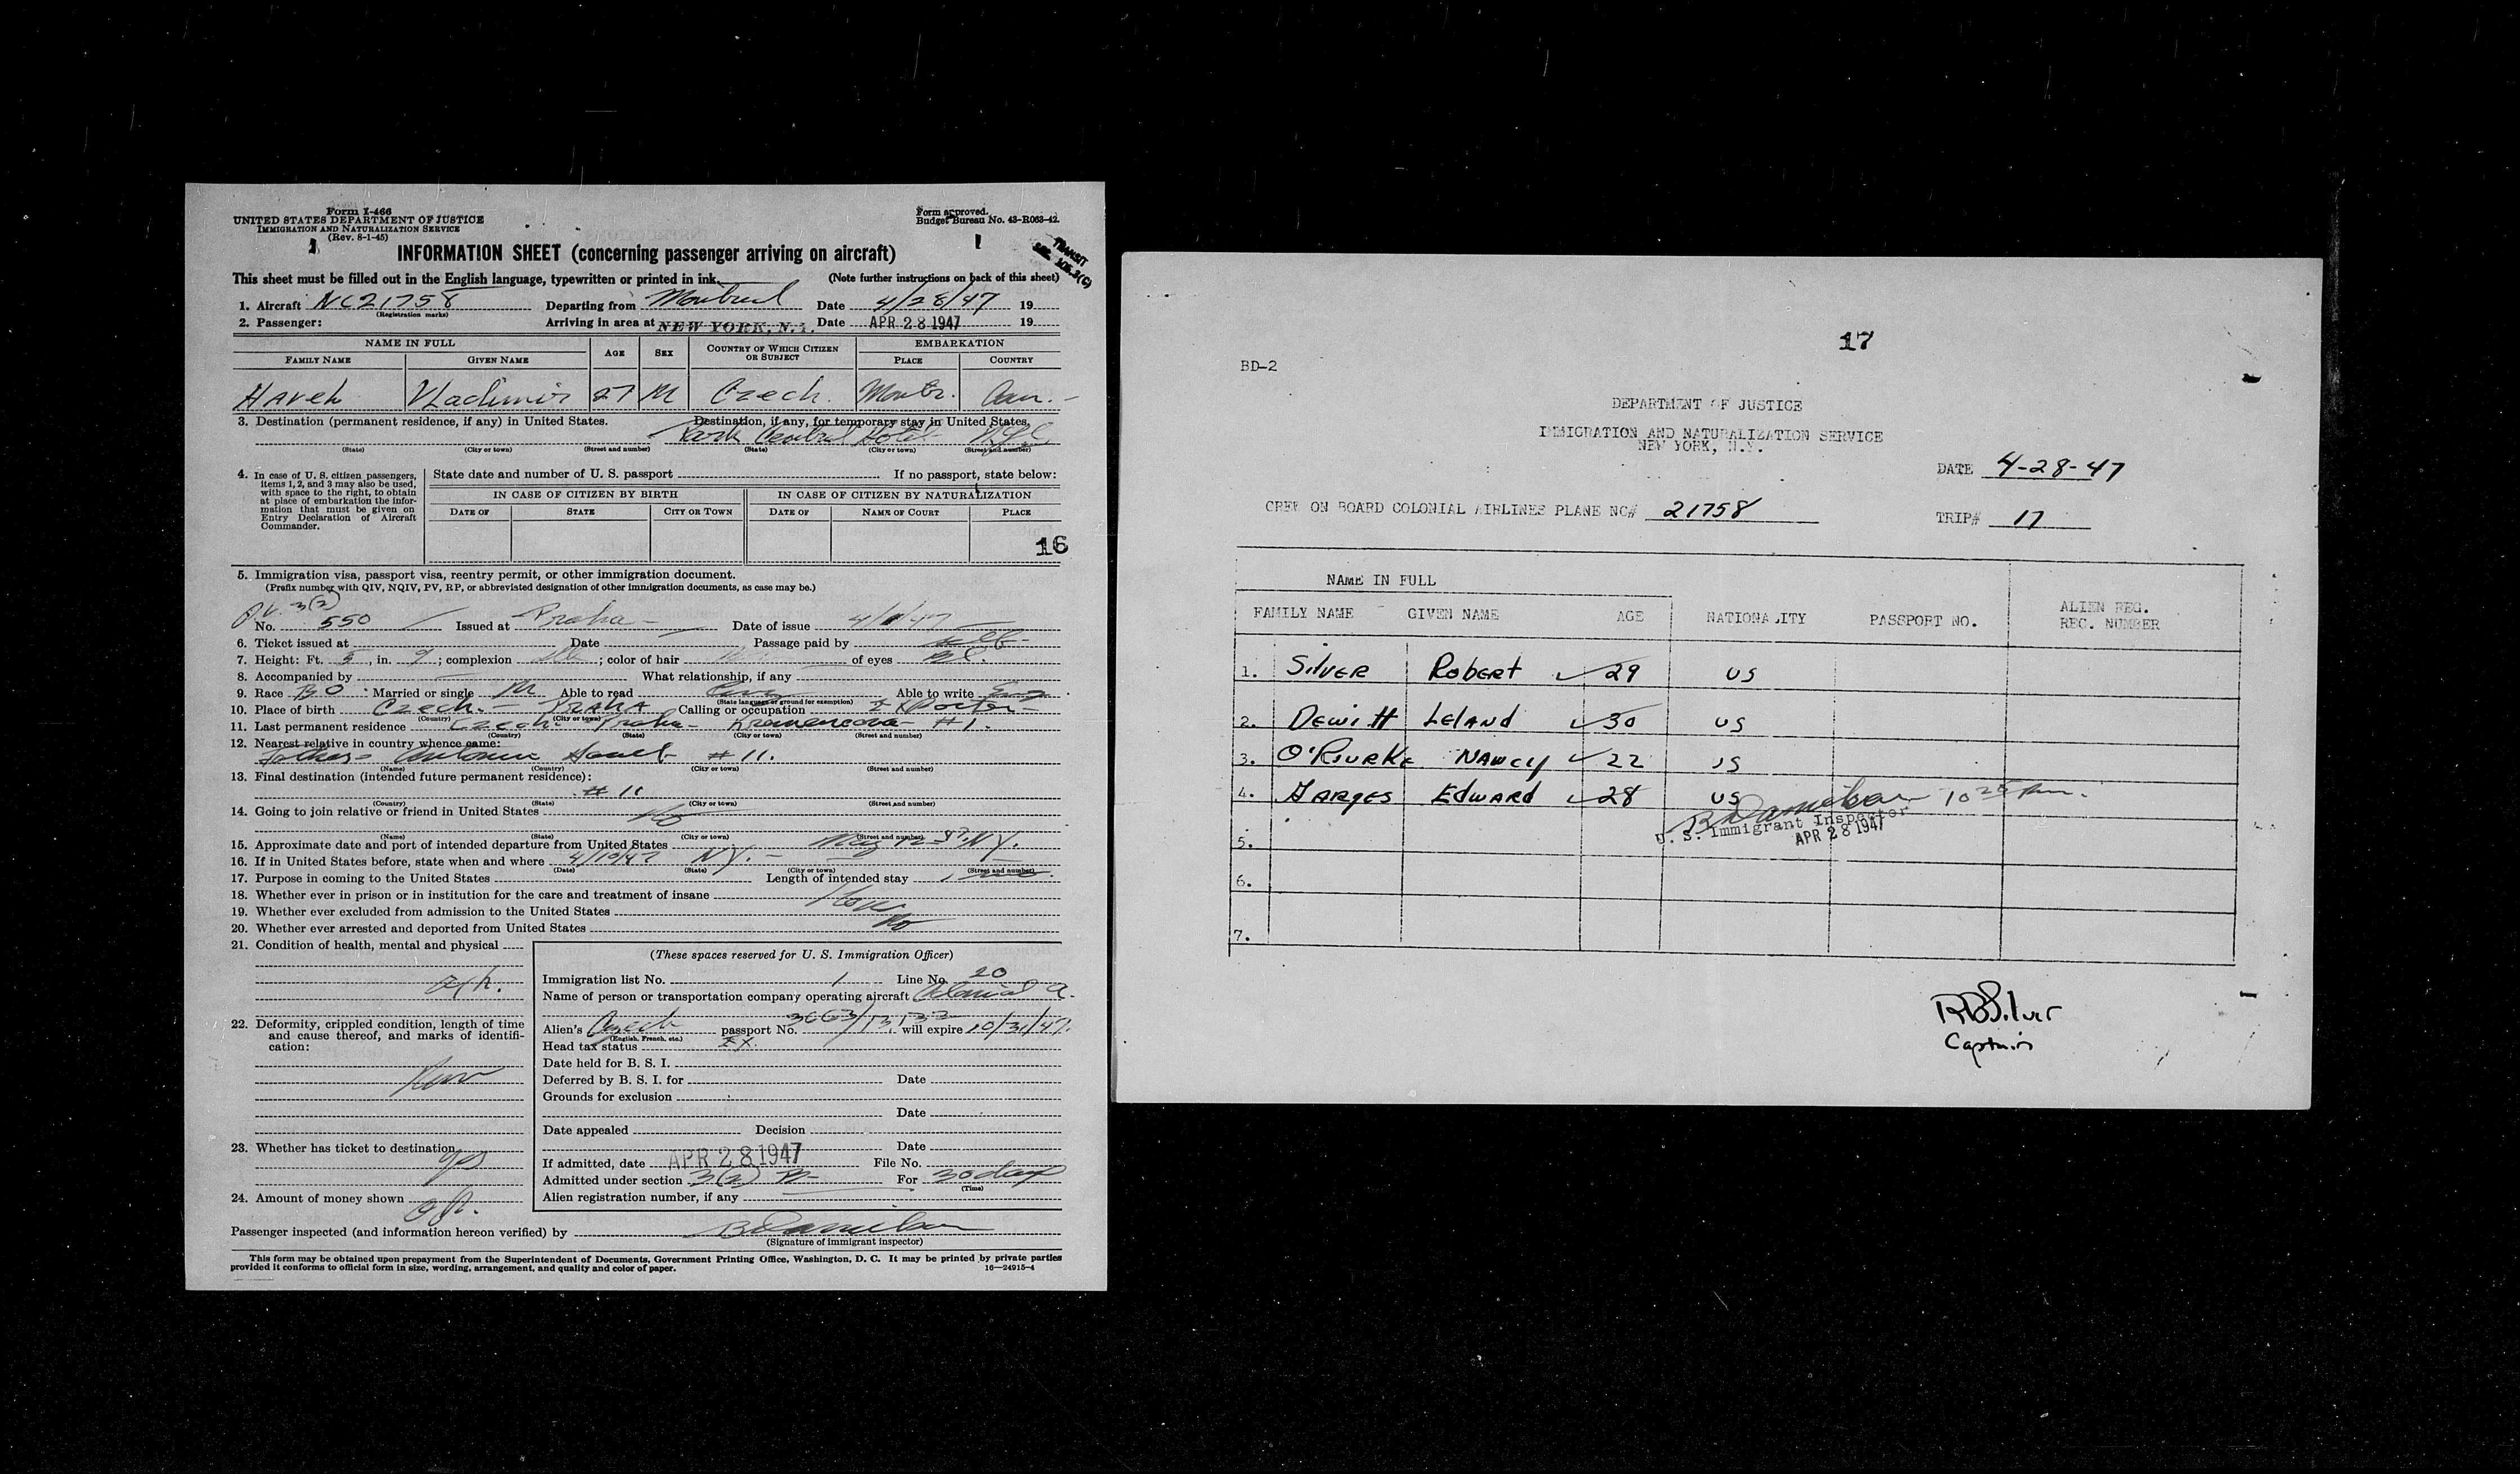 Form I-466
UNITED STATES DEPARTMENT OF JUSTICE
IMMIGRATION AND NATURALIZATION SERVICE
(Rev. 8-1-45)
Form approved.
Budget Bureau No. 43-R063-42.
1
TRANSIT
INFORMATION SHEET (concerning passenger arriving on aircraft)
This sheet must be filled out in the English language, typewritten or printed in ink. (Note further instructions on back of this sheet)
1. Aircraft NC21758 Departing from Montreal Date 4/28/47 19
(Registration marks)
2. Passenger: Arriving in area at NEW YORK, N.Y. Date APR 28 1947 19
NAME IN FULL AGE SEX COUNTRY OF WHICH CITIZEN OR SUBJECT EMBARKATION
FAMILY NAME GIVEN NAME PLACE COUNTRY
Havel Vladimir 27 M Czech. Montr. Can.
3. Destination (permanent residence, if any) in United States. Destination, if any, for temporary stay in United States,
Park Central Hotel
(State) (City or town) (Street and number) (State) (City or town) (Street and number)
4. In case of U. S. citizen passengers, items 1, 2, and 3 may also be used, with space to the right, to obtain at place of embarkation the information that must be given on Entry Declaration of Aircraft Commander.
State date and number of U. S. passport If no passport, state below:
IN CASE OF CITIZEN BY BIRTH IN CASE OF CITIZEN BY NATURALIZATION
DATE OF STATE CITY OR TOWN DATE OF NAME OF COURT PLACE
16
5. Immigration visa, passport visa, reentry permit, or other immigration document.
(Prefix number with QIV, NQIV, PV, RP, or abbreviated designation of other immigration documents, as case may be.)
3(2)
No. 550 Issued at Praha Date of issue
6. Ticket issued at Date Passage paid by self
7. Height: Ft. 5, in. 9; complexion ; color of hair of eyes Bl.
8. Accompanied by What relationship, if any
9. Race BO Married or single M Able to read Able to write
(State language or ground for exemption)
10. Place of birth Czech. Praha Calling or occupation
(Country) (City or town)
11. Last permanent residence Czech. Praha #1.
(Country) (State) (City or town) (Street and number)
12. Nearest relative in country whence came:
Father Antonin Havel #11.
(Name) (Country) (City or town) (Street and number)
13. Final destination (intended future permanent residence):
#11
(Country) (State) (City or town) (Street and number)
14. Going to join relative or friend in United States No
(Name) (State) (City or town) (Street and number)
15. Approximate date and port of intended departure from United States May N.Y.
16. If in United States before, state when and where 4/10/47 N.Y.
(Date) (State) (City or town) (Street and number)
17. Purpose in coming to the United States Length of intended stay
18. Whether ever in prison or in institution for the care and treatment of insane
19. Whether ever excluded from admission to the United States
20. Whether ever arrested and deported from United States No
21. Condition of health, mental and physical
22. Deformity, crippled condition, length of time and cause thereof, and marks of identification:
23. Whether has ticket to destination yes
24. Amount of money shown
(These spaces reserved for U. S. Immigration Officer)
Immigration list No. 1 Line No. 20
Name of person or transportation company operating aircraft Colonial A.
Alien's Czech passport No. 3663/13,133 will expire 10/31/47.
(English, French, etc.)
Head tax status EX.
Date held for B. S. I.
Deferred by B. S. I. for Date
Grounds for exclusion
Date
Date appealed Decision
Date
If admitted, date APR 28 1947 File No.
Admitted under section 3(2) For 30 days
(Time)
Alien registration number, if any
Passenger inspected (and information hereon verified) by
(Signature of immigrant inspector)
This form may be obtained upon prepayment from the Superintendent of Documents, Government Printing Office, Washington, D. C. It may be printed by private parties
provided it conforms to official form in size, wording, arrangement, and quality and color of paper. 16—24915-4
17
BD-2
DEPARTMENT OF JUSTICE
IMMIGRATION AND NATURALIZATION SERVICE
NEW YORK, N.Y.
DATE 4-28-47
CREW ON BOARD COLONIAL AIRLINES PLANE NC# 21758 TRIP# 17
NAME IN FULL
FAMILY NAME GIVEN NAME AGE NATIONALITY PASSPORT NO. ALIEN REG. REC. NUMBER
1. Silver Robert 29 US
2. Dewitt Leland 30 US
3. O'Rourke Nancy 22 US
4. Garges Edward 28 US
U. S. Immigrant Inspector
APR 28 1947
5.
6.
7.
RB Silver
Captain